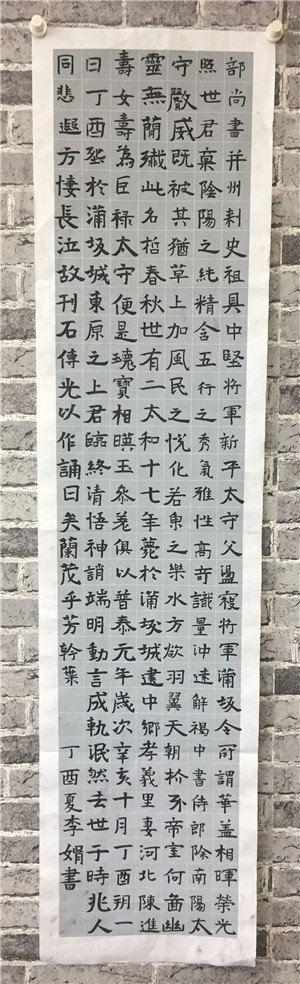 部尚書并州刺史祖具中堅將軍新平太守父盪寇將軍蒲坂令所謂華蓋相暉榮光
照世君稟陰陽之純精含五行之秀氣雅性高奇識量沖遠解褐中書侍郎除南陽太
守嚴威既被其猶草上加風民之悅化若魚之樂水方欲羽翼天朝抓牙帝室何啚幽
靈無蘭殲此名哲春秋世有二太和十七年薨於蒲坂城建中鄉孝義里妻河北陳進
壽女壽為巨祿太守便是瓌寶相暎玉參差俱以普泰元年歲次辛亥十月丁酉朔一
日丁酉葬於蒲坂城東原之上君臨終清悟神誚端明動言成軌泯然去世于時兆人
同悲遐方悽長泣故刊石傳光以作誦曰矣蘭茂乎芳幹葉
丁酉夏李娟書